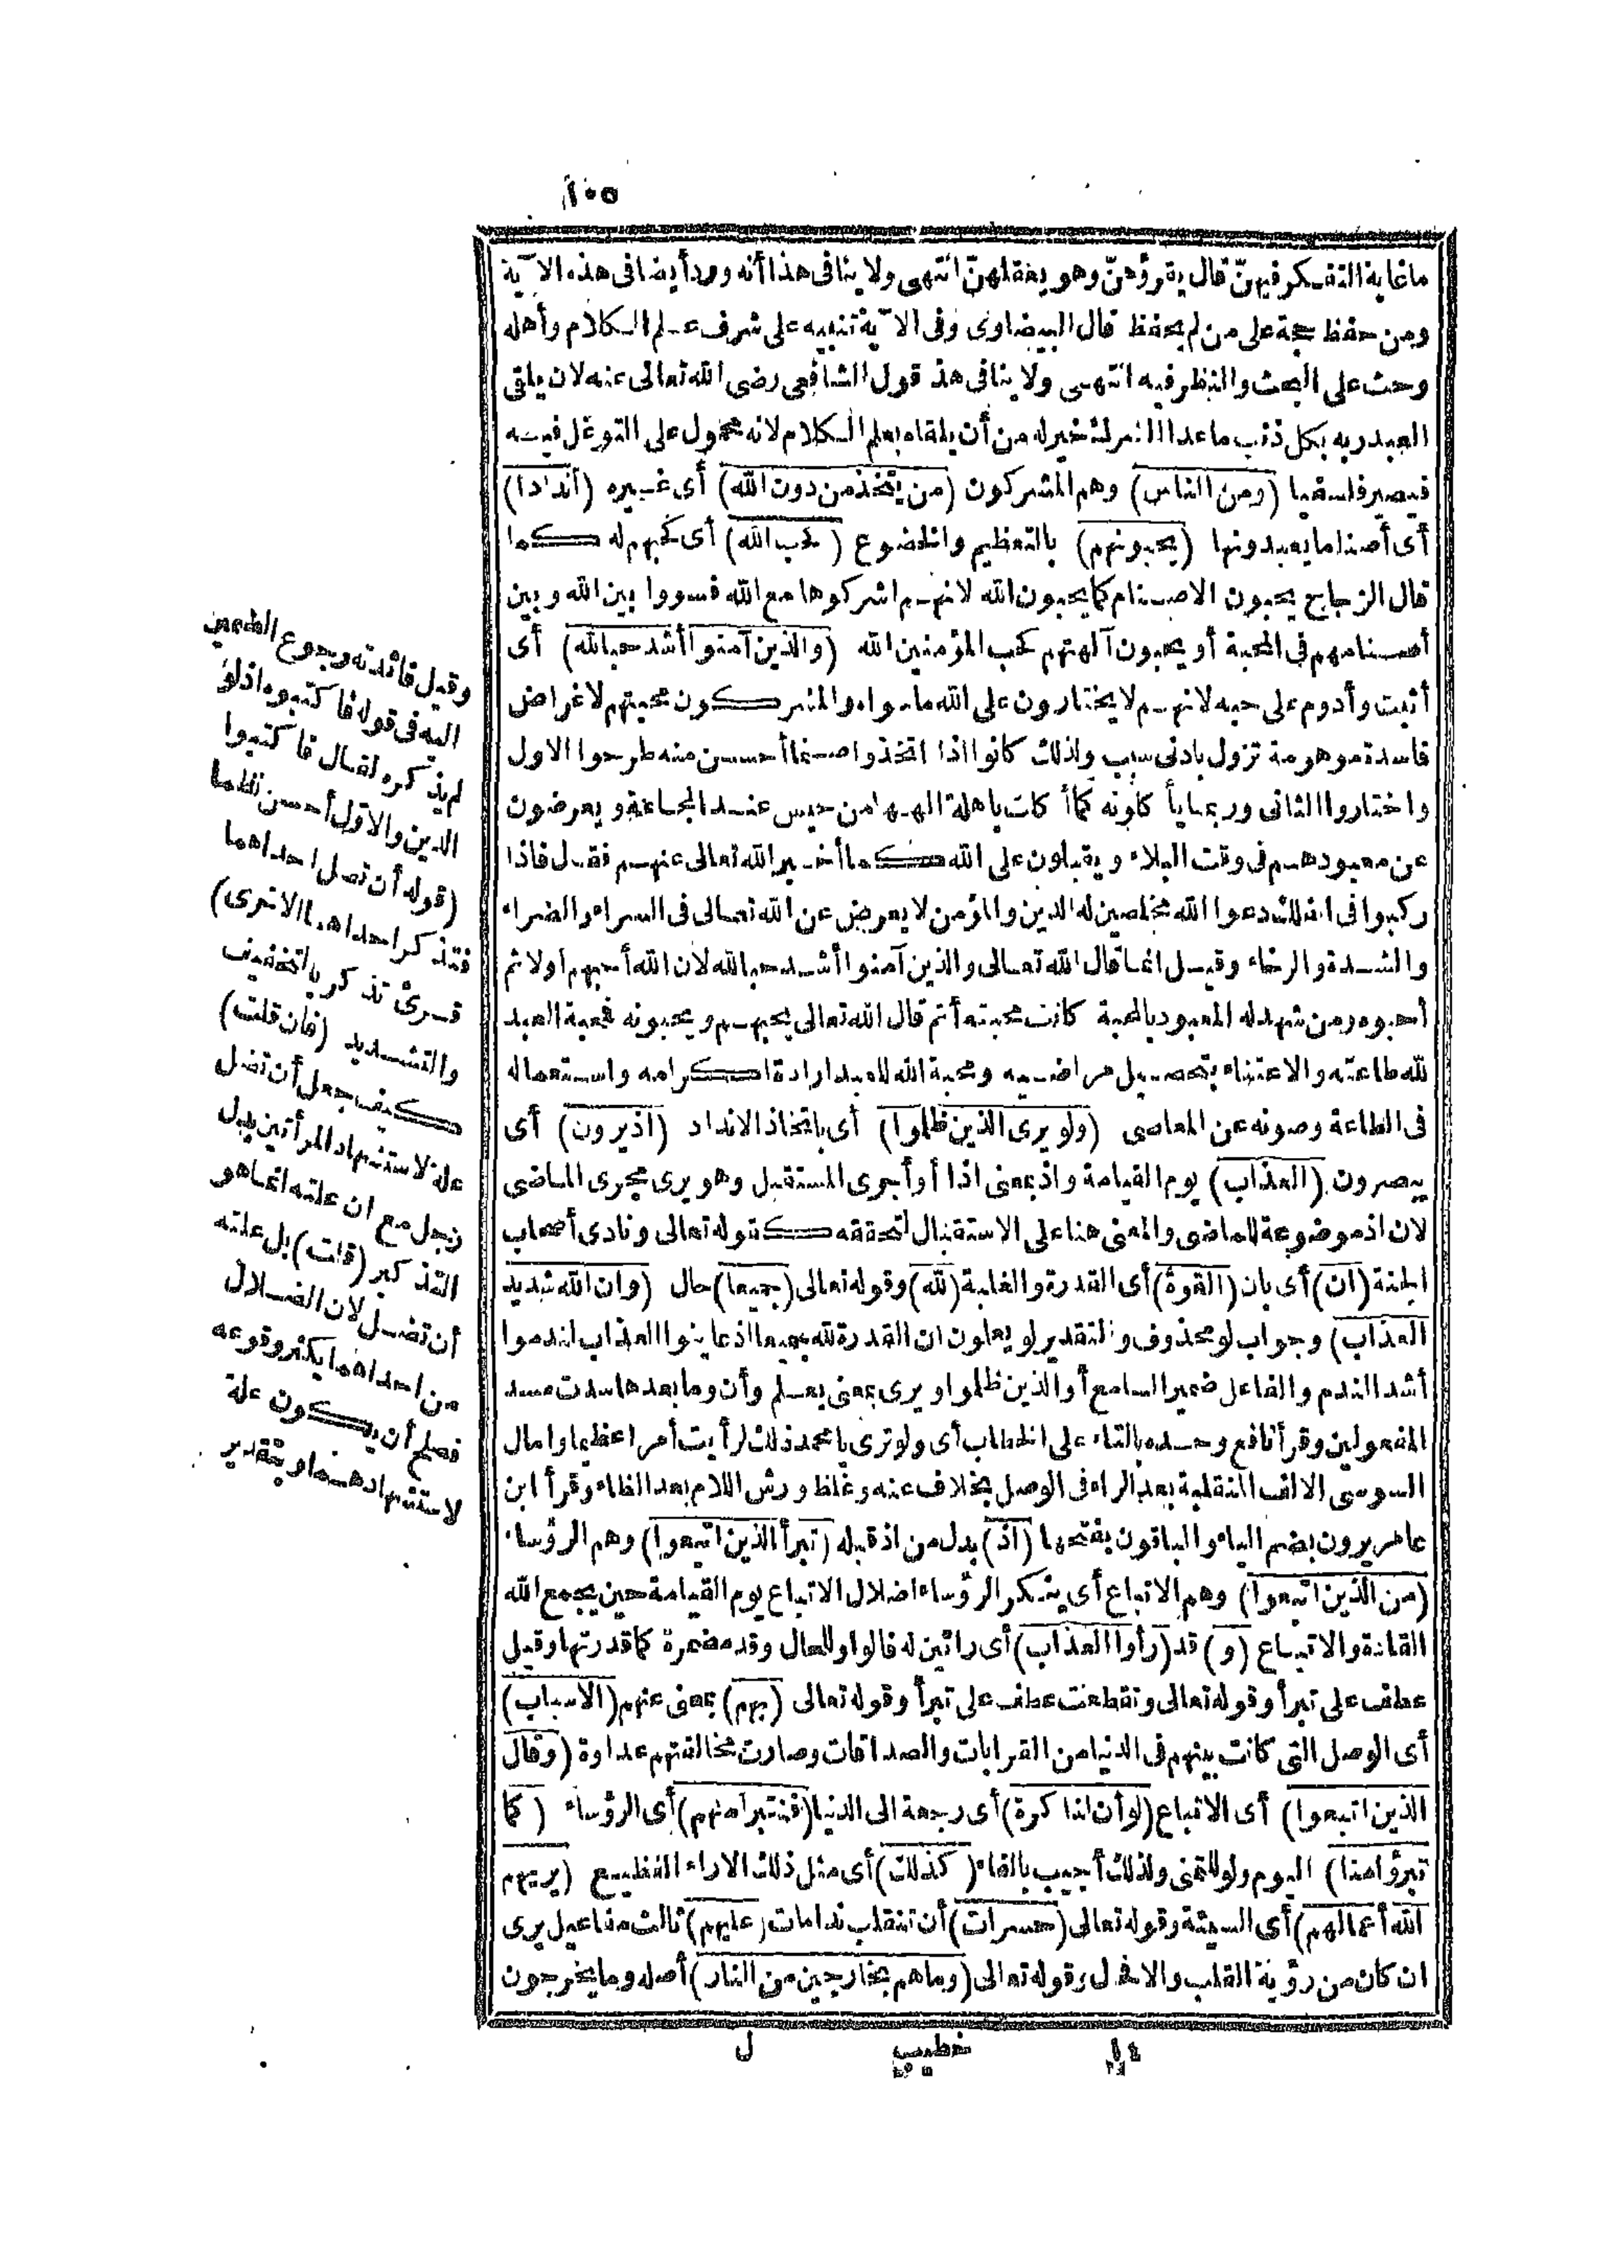 ١٠٥
ما غاية التفكر فيهنّ قال يقرؤهنّ وهو يعقلهنّ انتهى ولا ينافى هذا أنه ورد أيضا فى هذه الآية
ومن حفظ حجة على من لم يحفظ قال البيضاوى وفى الآية تنبيه على شرف علم الكلام وأهله
وحث على البحث والنظر فيه انتهى ولا ينافى هذ قول الشافعى رضى الله تعالى عنه لان يلقى
العبد ربه بكل ذنب ما عدا الشرك خير له من أن يلقاه بعلم الكلام لانه محمول على التوغل فيه
فيصير فلسفيا (ومن الناس) وهم المشركون (من يتخذ من دون الله) أى غيره (أندادا)
أى أصناما يعبدونها (يحبونهم) بالتعظيم والخضوع (كحب الله) أى كحبهم له كما
قال الزجاج يحبون الاصنام كما يحبون الله لانهم اشركوها مع الله فسووا بين الله وبين
أصنامهم فى المحبة أو يحبون آلهتهم كحب المؤمنين الله (والذين آمنوا أشد حبا لله) أى
أثبت وأدوم على حبه لانهم لا يختارون على الله ما سواه والمشركون محبتهم لاغراض
فاسدة موهومة تزول بادنى سبب ولذلك كانوا اذا اتخذوا صنما أحسن منه طرحوا الاول
واختاروا الثانى وربما يأكلونه كما أكلت باهلة الهها من حيس عند المجاعة ويعرضون
عن معبودهم فى وقت البلاء ويقبلون على الله كما أخبر الله تعالى عنهم فقال فاذا
ركبوا فى الفلك دعوا الله مخلصين له الدين والمؤمن لا يعرض عن الله تعالى فى السراء والضراء
والشدة والرخاء وقيل انما قال الله تعالى والذين آمنوا أشد حبا لله لان الله أحبهم أولا ثم
أحبوه ومن شهد له المعبود بالمحبة كانت محبته أتم قال الله تعالى يحبهم ويحبونه فمحبة العبد
لله طاعته والاعتناء بتحصيل مراضيه ومحبة الله للعبد ارادة اكرامه واستعماله
فى الطاعة وصونه عن المعاصى (ولو يرى الذين ظلموا) أى باتخاذ الانداد (اذ يرون) أى
يبصرون (العذاب) يوم القيامة واذ بمعنى اذا أو أجرى المستقبل وهو يرى مجرى الماضى
لان اذ موضوعة للماضى والمعنى هنا على الاستقبال لتحققه كقوله تعالى ونادى أصحاب
الجنة (ان) أى بان (القوة) أى القدرة والغلبة (لله) وقوله تعالى (جميعا) حال (وان الله شديد
العذاب) وجواب لو محذوف والتقدير لو يعلمون ان القدرة لله جميعا اذ عاينوا العذاب لندموا
أشد الندم والفاعل ضمير السامع أو الذين ظلموا ويرى بمعنى يعلم وأن وما بعدها سدت مسد
المفعولين وقرأ نافع وحده بالتاء على الخطاب أى ولو ترى يا محمد ذلك لرأيت أمرا عظيما وامال
السوسى الالف المنقلبة بعد الراء فى الوصل بخلاف عنه وغلظ ورش اللام بعد الظاء وقرأ ابن
عامر يرون بضم الياء والباقون بفتحها (اذ) بدل من اذ قبله (تبرأ الذين اتبعوا) وهم الرؤساء
(من الذين اتبعوا) وهم الاتباع أى ينكر الرؤساء اضلال الاتباع يوم القيامة حين يجمع الله
القادة والاتباع (و) قد (رأوا العذاب) أى رائين له فالواو للحال وقد مضمرة كما قدرتها وقيل
عطف على تبرأ وقوله تعالى وتقطعت عطف على تبرأ وقوله تعالى (بهم) بمعنى عنهم (الاسباب)
أى الوصل التى كانت بينهم فى الدنيا من القرابات والصداقات وصارت مخالتهم عداوة (وقال
الذين اتبعوا) أى الاتباع (لو أن لنا كرة) أى رجعة الى الدنيا (فنتبرأ منهم) أى الرؤساء (كما
تبرؤا منا) اليوم ولو للتمنى ولذلك أجيب بالفاء (كذلك) أى مثل ذلك الاراء الفظيع (يريهم
الله أعمالهم) أى السيئة وقوله تعالى (حسرات) أن تنقلب ندامات (عليهم) ثالث مفاعيل يرى
ان كان من رؤية القلب والا فحال وقوله تعالى (وما هم بخارجين من النار) أصله وما يخرجون
١٤ خطيب ل
وقيل فائدته رجوع الضمير
اليه فى قوله فاكتبوه اذ لو
لم يذكره لقال فاكتبوا
الدين والاوّل أحسن نظما
(قوله أن تضل احداهما
فتذكر احداهما الاخرى)
قرئ تذكر بالتخفيف
والتشديد (فان قلت)
كيف جعل أن تضل
علة لاستشهاد المرأتين بدل
رجل مع ان علته انما هو
التذكير (قلت) بل علته
أن تضل لان الضلال
من احداهما يكثر وقوعه
فصلح أن يكون علة
لاستشهادهما وبتقدير